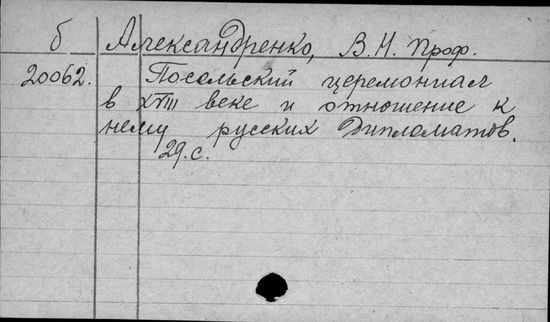 б Александренко, В.Н. проф.
20062. Посольский церемониал
в XVIII веке и отношение к
нему русских дипломатов.
29.с.